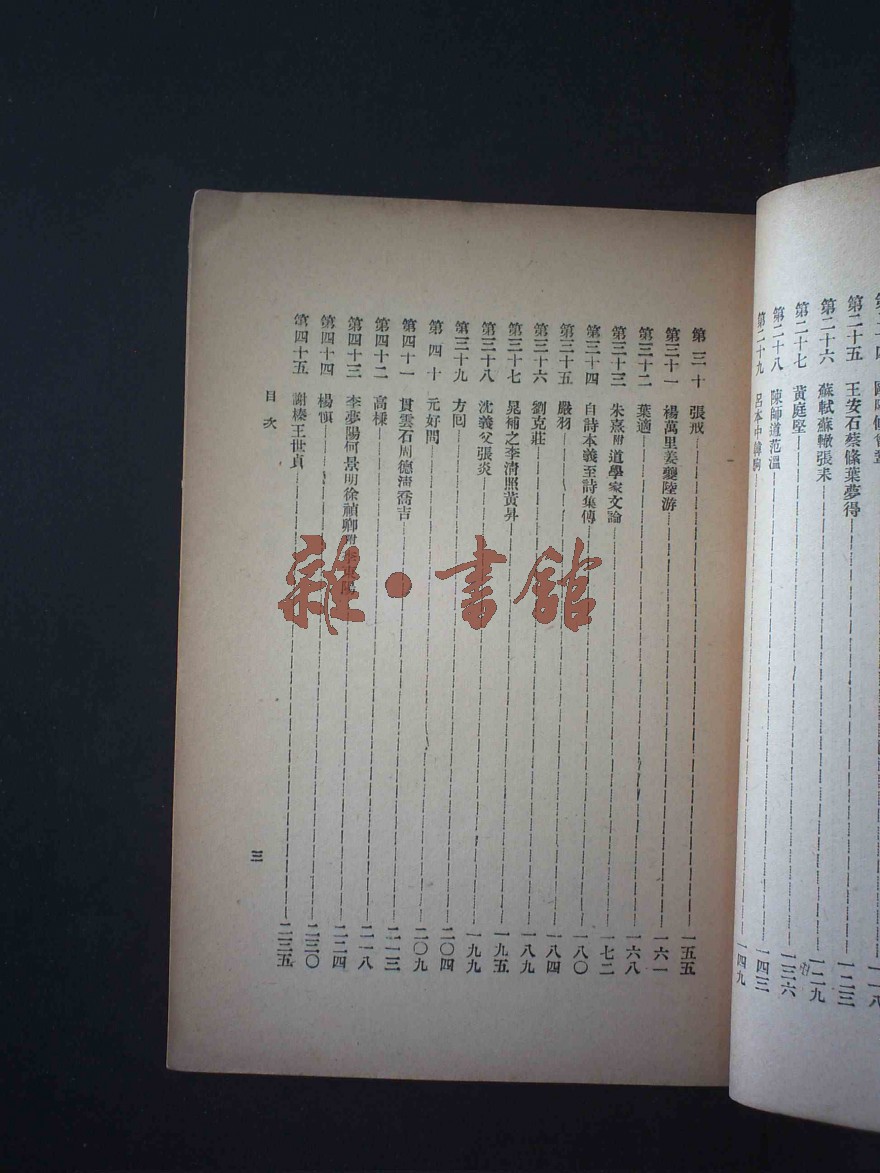 第二十五 王安石蔡絛葉夢得 一二三
第二十六 蘇軾蘇轍張耒 一二九
第二十七 黃庭堅 一三六
第二十八 陳師道范溫 一四三
第二十九 呂本中韓駒 一四九
第三十 張戒 一五五
第三十一 楊萬里姜夔陸游 一六一
第三十二 葉適 一六八
第三十三 朱熹附道學家文論 一七二
第三十四 自詩本義至詩集傳 一八〇
第三十五 嚴羽 一八四
第三十六 劉克莊 一八九
第三十七 晁補之李清照黃昇 一九五
第三十八 沈義父張炎 一九九
第三十九 方囘 二〇四
第四十 元好問 二〇九
第四十一 貫雲石周德淸喬吉 二一三
第四十二 高棅 二一八
第四十三 李夢陽何景明徐禎卿附 二二四
第四十四 楊愼 二三〇
第四十五 謝榛王世貞 二三五
目次
三
雜·書館